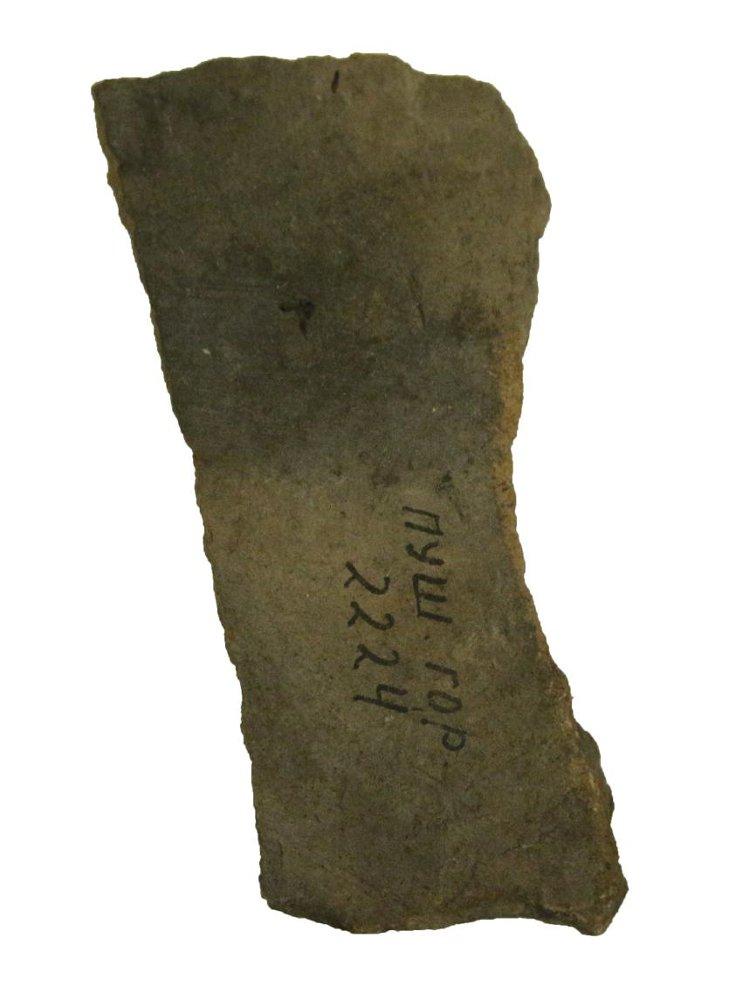 пуш. гор
2224